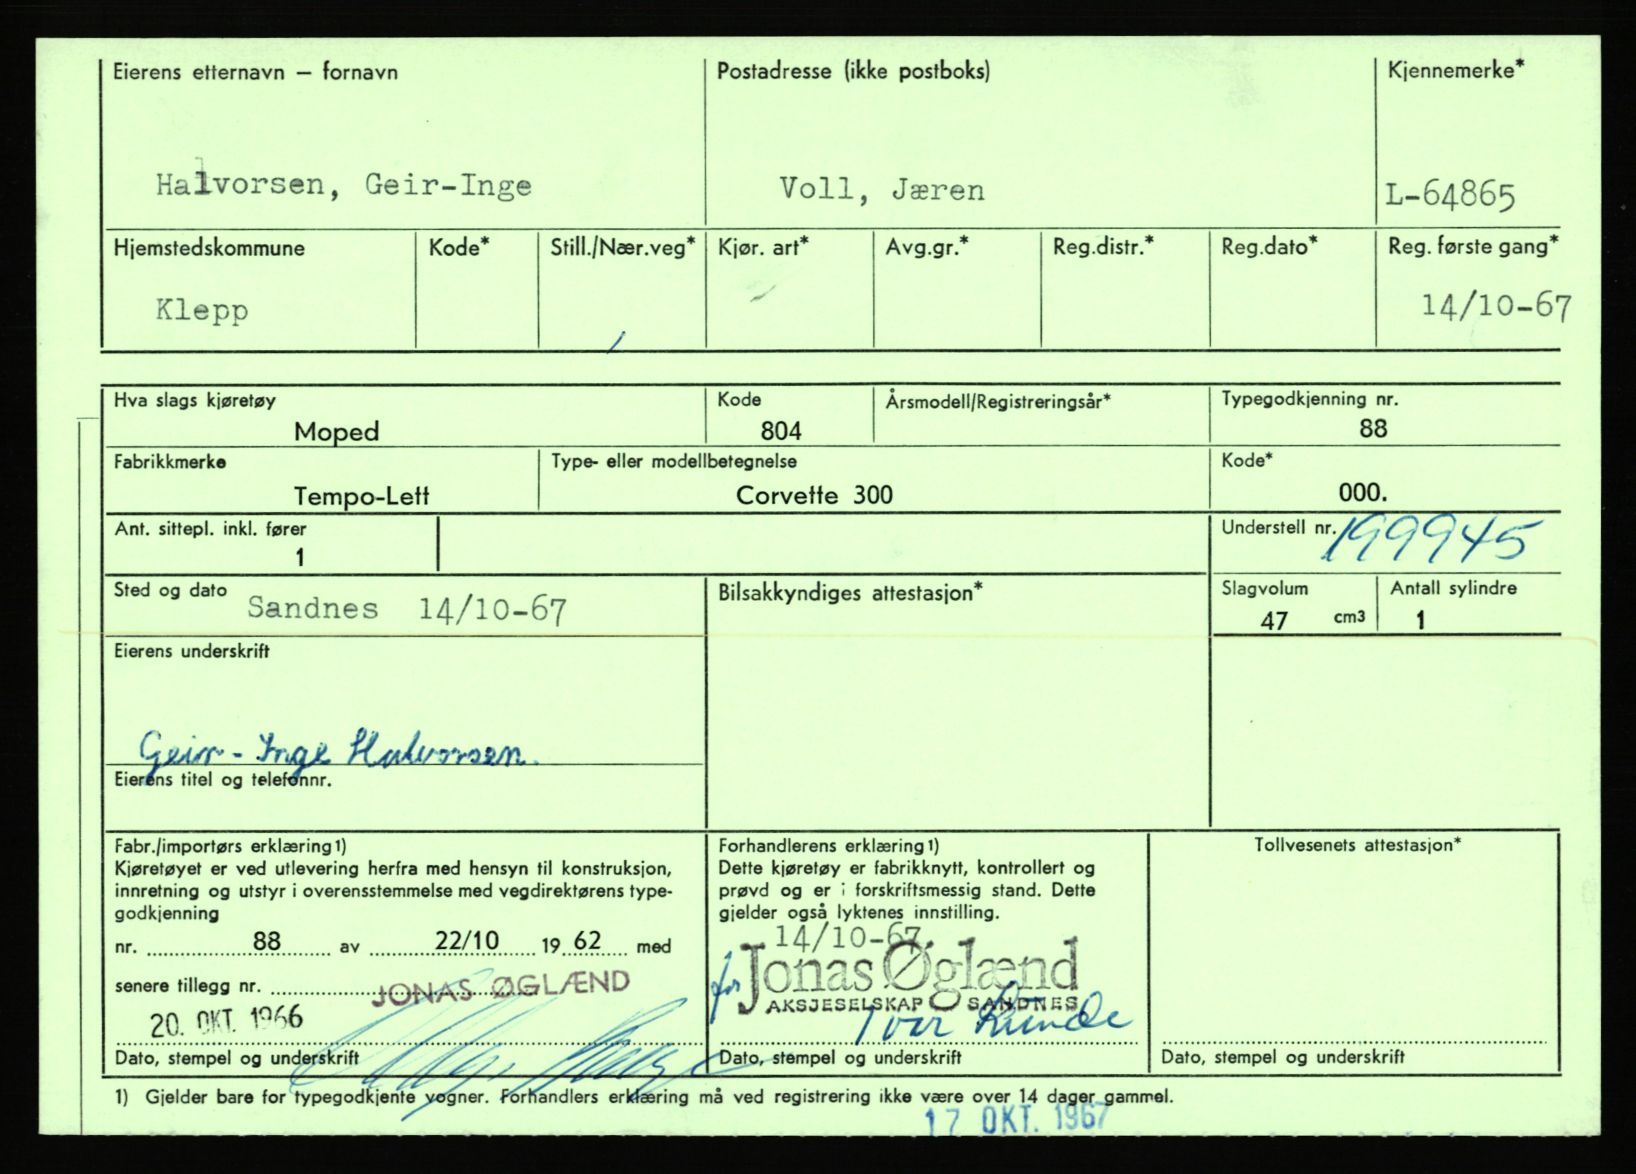 Eierens etternavn — fornavn
Postadresse (ikke postboks)
Kjennemerke*
Halvorsen, Geir-Inge
Voll, Jæren
L-64865
Hjemstedskommune
Kode*
Still./Nær.veg*
Kjør. art*
Avg.gr.*
Reg.distr.*
Reg.dato*
Reg. første gang*
Klepp
14/10-67
Hva slags kjøretøy
Kode
Årsmodell/Registreringsår*
Typegodkjenning nr.
Moped
804
88
Fabrikkmerke
Type- eller modellbetegnelse
Kode*
Tempo-Lett
Corvette 300
000.
Ant. sittepl. inkl. fører
1
Understell nr. 199945
Sted og dato Sandnes 14/10-67
Bilsakkyndiges attestasjon*
Slagvolum
Antall sylindre
47 cm3
1
Eierens underskrift
Geir-Inge Halvorsen.
Eierens titel og telefonnr.
Fabr./importørs erklæring 1)
Kjøretøyet er ved utlevering herfra med hensyn til konstruksjon,
innretning og utstyr i overensstemmelse med vegdirektørens type-
godkjenning
nr. 88 av 22/10 19 62 med
senere tillegg nr.
JONAS ØGLÆND
20. OKT. 1966
Dato, stempel og underskrift
Forhandlerens erklæring 1)
Dette kjøretøy er fabrikknytt, kontrollert og
prøvd og er i forskriftsmessig stand. Dette
gjelder også lyktenes innstilling.
14/10-67
for Jonas Øglænd
AKSJESELSKAP SANDNES
Dato, stempel og underskrift
Tollvesenets attestasjon*
Dato, stempel og underskrift
1) Gjelder bare for typegodkjente vogner. Forhandlers erklæring må ved registrering ikke være over 14 dager gammel.
17 OKT. 1967